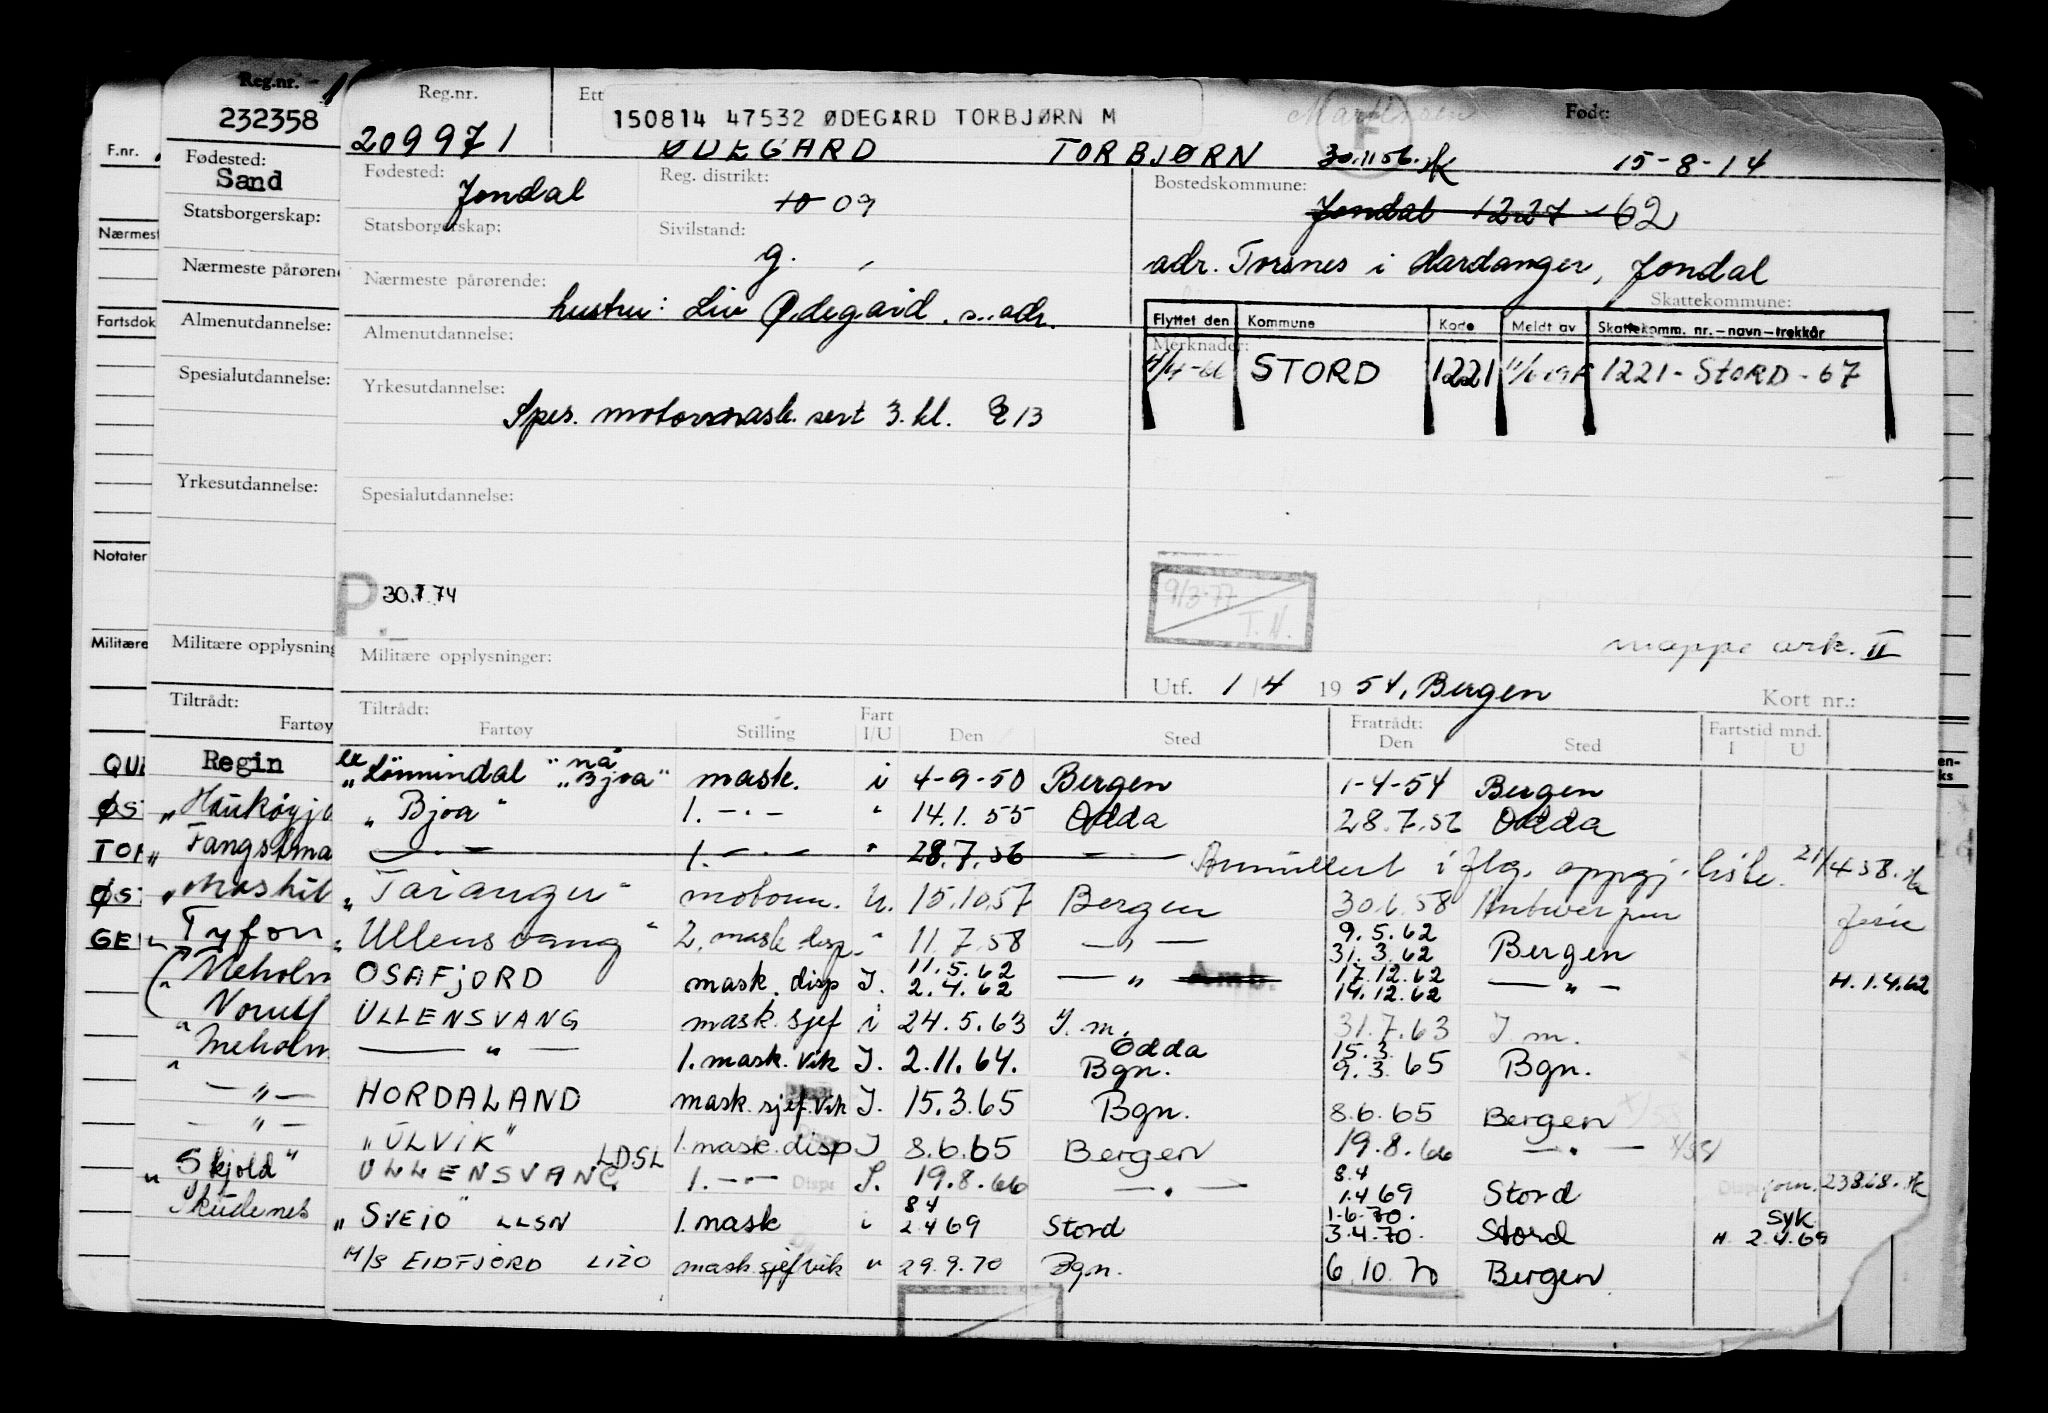 F.nr.
Nærmest
Fartsdok
Notater
Militære
QUI
ØS
TOR
ØS
GE
Reg.nr.
232358
Fødested:
Sand
Statsborgerskap:
Nærmeste pårørend
Almenutdannelse:
Spesialutdannelse:
Yrkesutdannelse:
Militære opplysning
Tiltrådt:
Fartøy
Regin
Fangstma
Tyfon
Meholm
Meholm
— " —
— " —
" Skjold "
Skudenes
Reg.nr.
Ett
150814 47532 ØDEGÅRD TORBJØRN M
F
Født:
209971 ØDEGÅRD TORBJØRN 30.11.56. 15-8-14
Fødested: Jondal
Reg. distrikt: 10 09
Bostedskommune: Jondal 1227 - 62
Statsborgerskap:
Sivilstand: g.
adr. Torsnes i Hardanger, Jondal
Nærmeste pårørende: hustru: Liv Ødegård. s. adr.
Skattekommune:
Almenutdannelse:
Flyttet den Kommune Kode Meldt av Skattekomm. nr.–navn–trekkår
Merknader:
STORD 1221 1221 - STORD - 67
Yrkesutdannelse:
Spes. motormask. sert 3. kl. E 13
Spesialutdannelse:
P. 30.7.74
9/3-77 T.N.
mappe ark. II
Militære opplysninger:
Utf. 1/4 1954, Bergen
Kort nr.:
Tiltrådt: Fartøy Stilling Fart I/U Den Sted Fratrådt: Den Sted Fartstid mnd. I U
ex "Lønnindal" nå "Bjoa" mask. i 4-9-50 Bergen 1-4-54 Bergen
" Bjoa " 1. -·- " 14.1.55 Odda 28.7.56 Odda
— " — 1. — " — " 28.7.56 — " — Annullert i flg. oppgj. liste. 21/4 58.
" Taranger " motorm. U. 15.10.57 Bergen 30.6.58 Antwerpen ferie
" Ullensvang " 2. mask. disp " 11.7.58 — " — 9.5.62 31.3.62 Bergen
OSAFJORD mask. disp I. 11.5.62 2.4.62 — " — Amb. 17.12.62 14.12.62 — " — H. 1.4.62
ULLENSVANG mask. sjef i 24.5.63 I. m. 31.7.63 I m.
— " — 1. mask. vik I. 2.11.64. Odda Bgn. 15.3. 9.3.65 Bgn.
HORDALAND mask. sjef. vik I. 15.3.65 Bgn. 8.6.65 Bergen
"ULVIK" 1. mask. disp I 8.6.65 Bergen 19.8.66 — " —
ULLENSVANG LDSL 1. -·- Disp S. 19.8.66 — " — 8.4 1.4 69 Stord 23868.
" SVEIO " LLSN 1. mask i 84 2469 Stord 1.6.70. 3.4.70. Stord Syk H. 2.4.69
M/S EIDFJORD LIZO mask. sjef vik " 29.9.70 Bgn. 6.10.70 Bergen